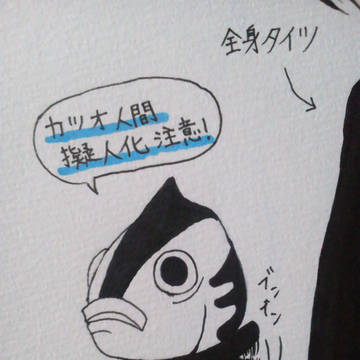 全身タイツ
カツオ人間
擬人化注意!
ブンブン